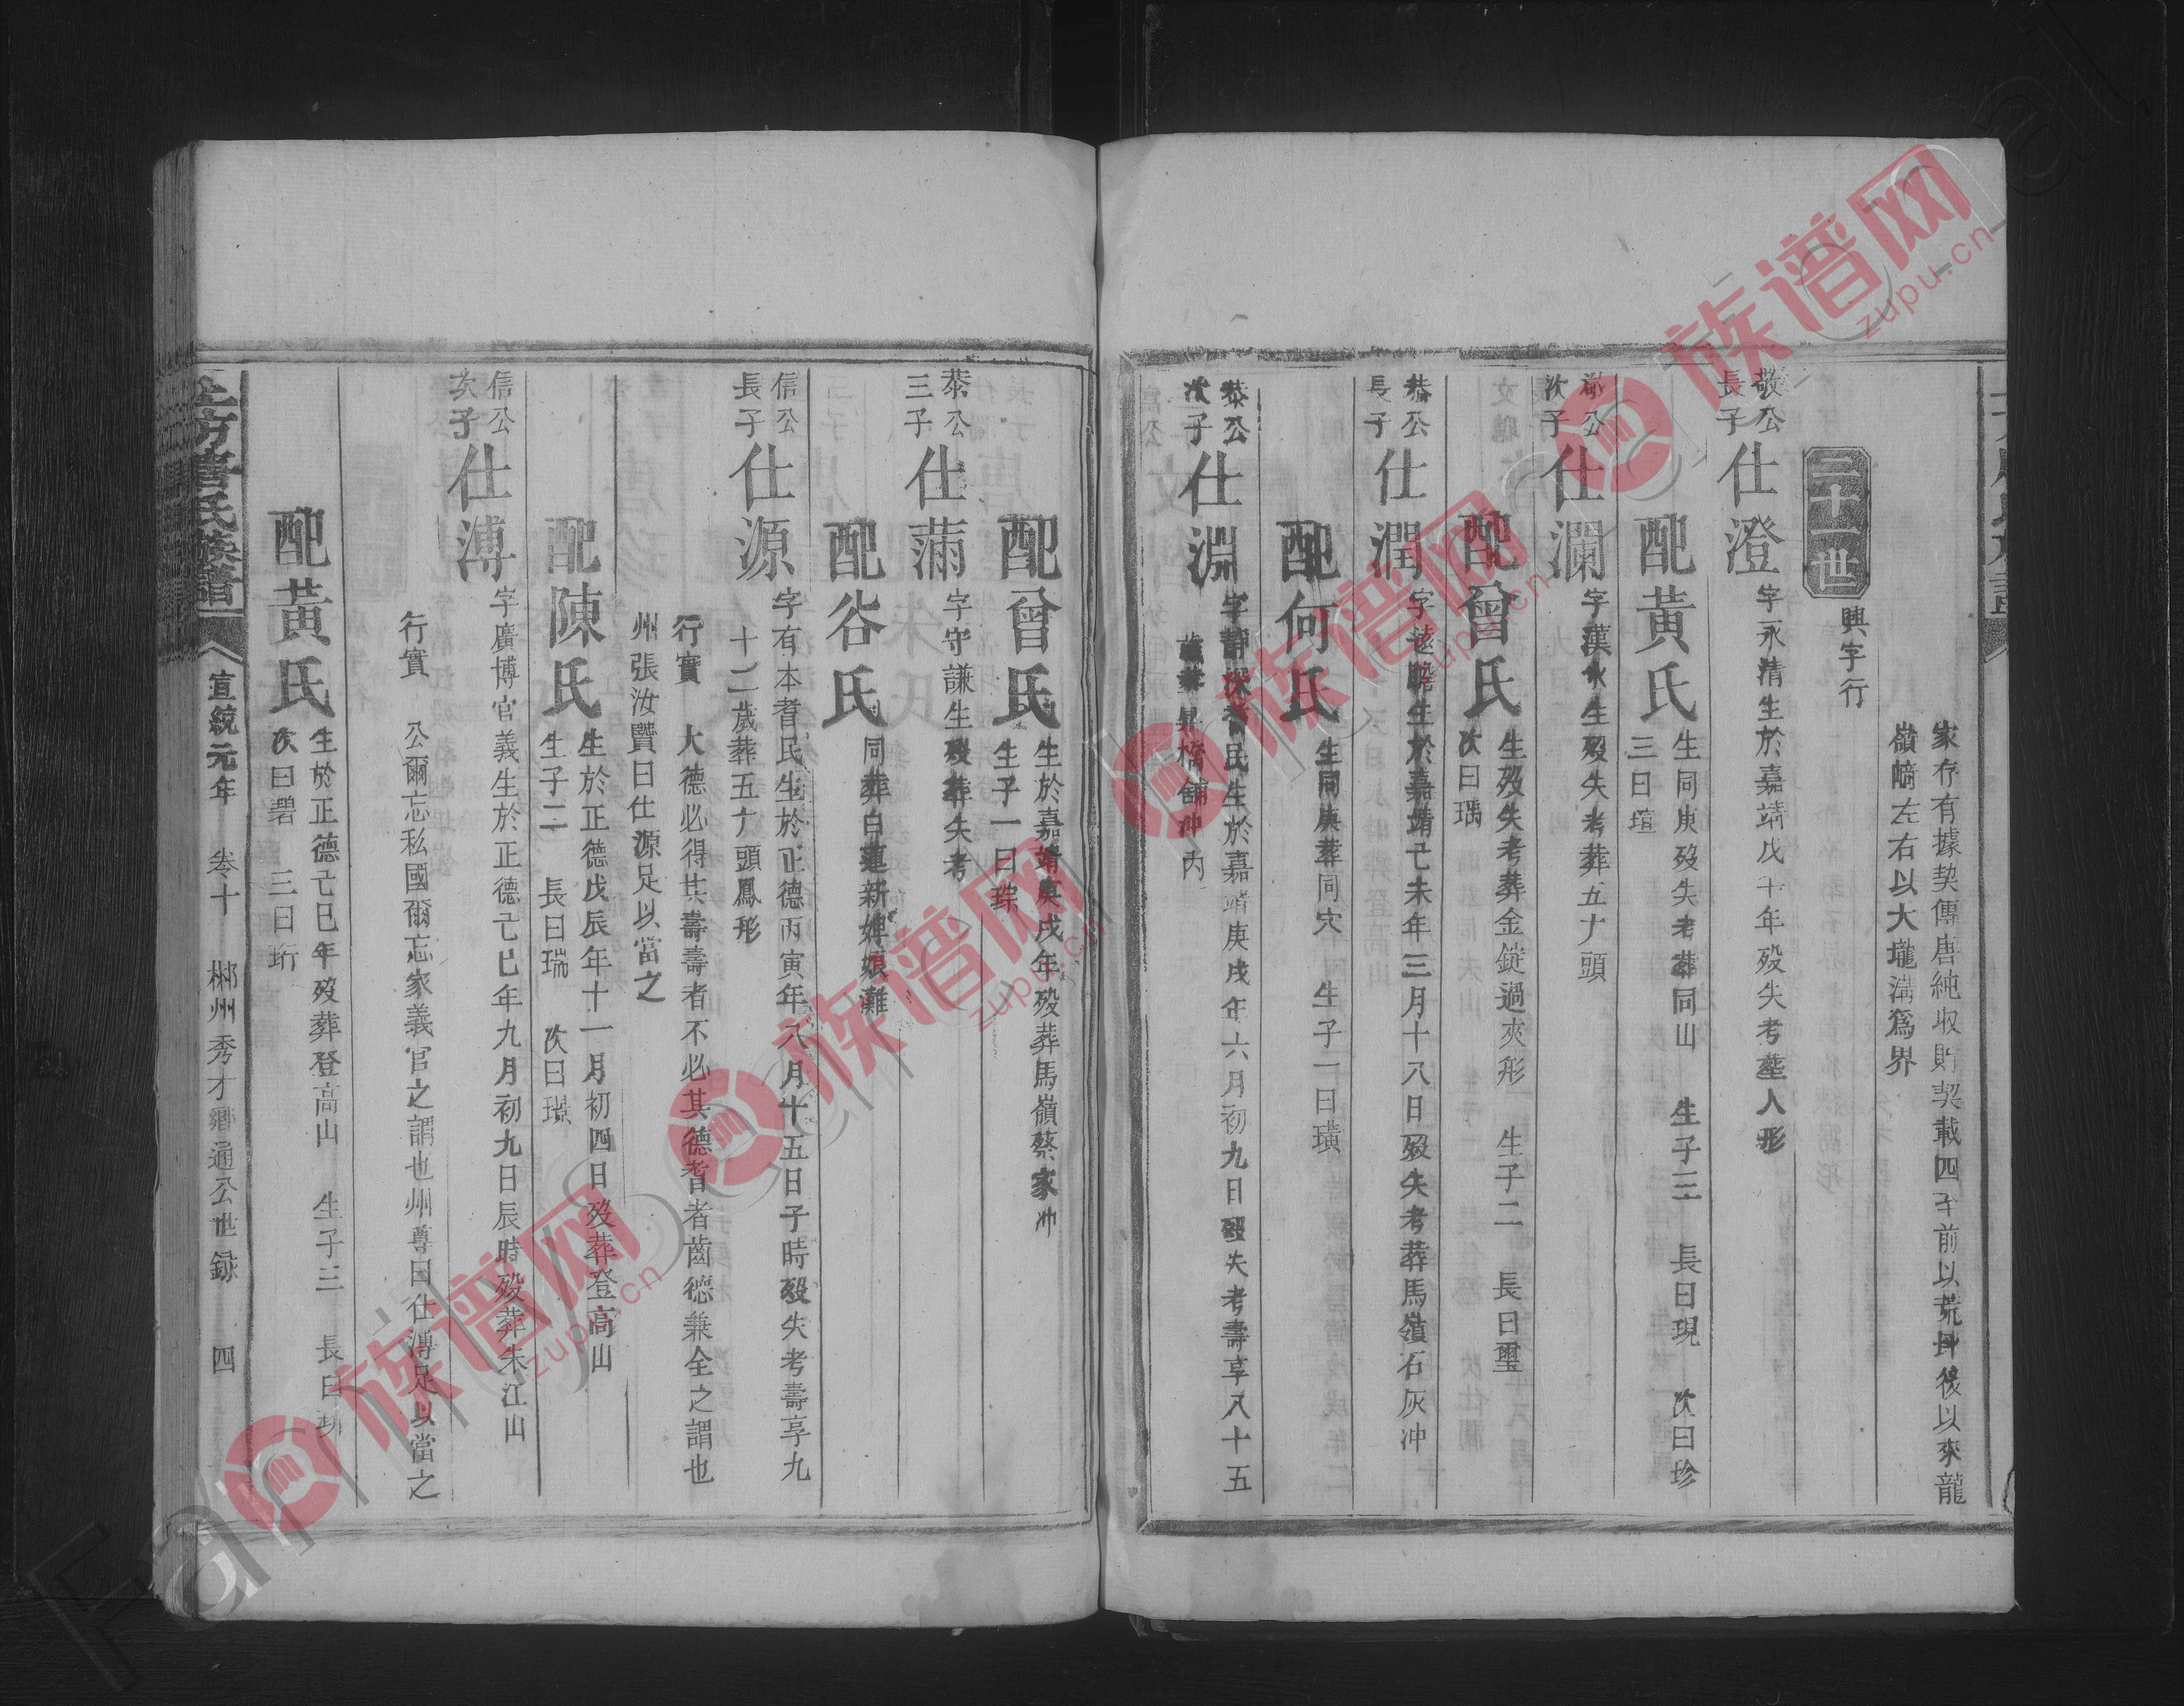 家存有據契傳唐純收貯契載四至前以荒坪後以來龍
嶺崎左右以大壠溝爲界
二十一世 興字行
敬公
長子
仕澄 字永清生於嘉靖戊子年歿失考塟人形
配黃氏
生同庚歿失考葬同山 生子三 長曰現 次曰珍
三曰瑄
敬公
次子
仕瀾 字漢水生歿失考葬五丁頭
配曾氏
生歿失考葬金錠過夾形 生子二 長曰璽
次曰瑀
恭公
長子
仕潤 生於嘉靖乙未年三月十八日歿失考葬馬嶺石灰冲
配何氏
生同庚葬同穴 生子一曰璜
恭公
次子
仕淵 民生於嘉靖庚戌年六月初九日歿失考壽享八十五
歲
配曾氏
生於嘉靖庚戌年歿葬馬嶺蔡家冲
生子一曰
恭公
三子
仕 字守謙生歿葬失考
配谷氏
同葬白蓮新婢娘灘
信公
長子
仕源 字有本耆民生於正德丙寅年八月十五日子時歿失考壽享九
十二歲葬五丁頭鳳形
行實 大德必得其壽壽者不必其德耆者齒德兼全之謂也
州張汝贒曰仕源足以當之
配陳氏
生於正德戊辰年十一月初四日歿葬登高山
生子二 長曰瑞 次曰璟
信公
次子
仕溥 字廣博官義生於正德己巳年九月初九日辰時歿葬朱江山
行實 公爾忘私國爾忘家義官之謂也州尊曰仕溥足以當之
配黃氏
生於正德己巳年歿葬登高山 生子三 長曰
次曰碧 三曰珩
唐氏族譜 宣統元年 卷十 郴州秀才鄉通公世錄 四
族谱网
zupu.cn
族谱网
zupu.cn
族谱网
zupu.cn
族谱网
zupu.cn